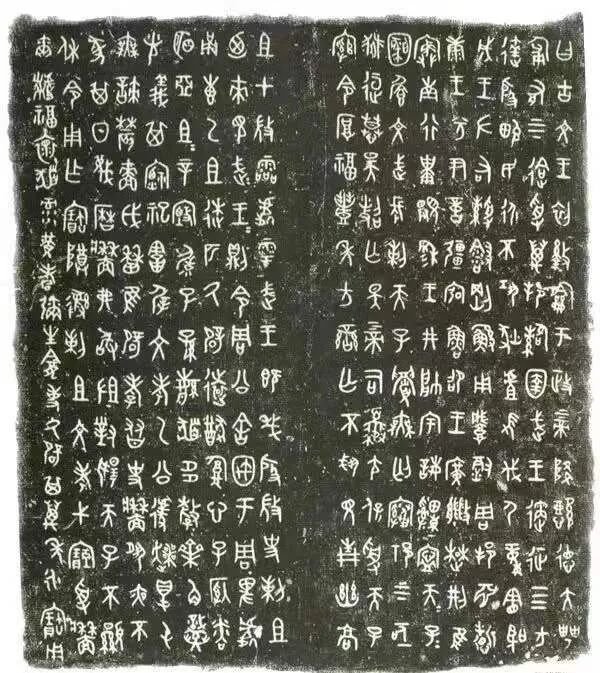 曰古文王初盭龢于政上帝降懿德大甹
匍有上下迨受萬邦䚄圉武王遹征四方
達殷畯民永不巩狄虘伐尸童憲聖
成王左右綬會剛鯀用肇徹周邦淵哲
康王尹億疆宖魯卲王廣能楚荊隹
寏南行祗顯穆王井帥宇誨䌛寧天子天子
文武長剌天子眉無匄祁上下亟
獄逗慕昊照亡斁上帝司夒保受天子
綰令厚福豐年方蠻亡不見青幽高
且才微霝處雩武王既殷微史剌且
廼來見武王武王則令周公舍㝢于周卑處
甬叀乙且逨匹厥辟遠猷腹心子納粦
明亞且且辛毓子孫繁多孷角熾光
義其禋祀害屖文考乙公遽得屯
無諫農穡歷隹辟孝友史牆夙夜不
㒸其日蔑曆牆弗敢沮對揚天子不顯
休令用乍寶尊彝剌且文考弋受牆
爾福懷彔黃耇彌生龕事厥辟其萬年永寶用